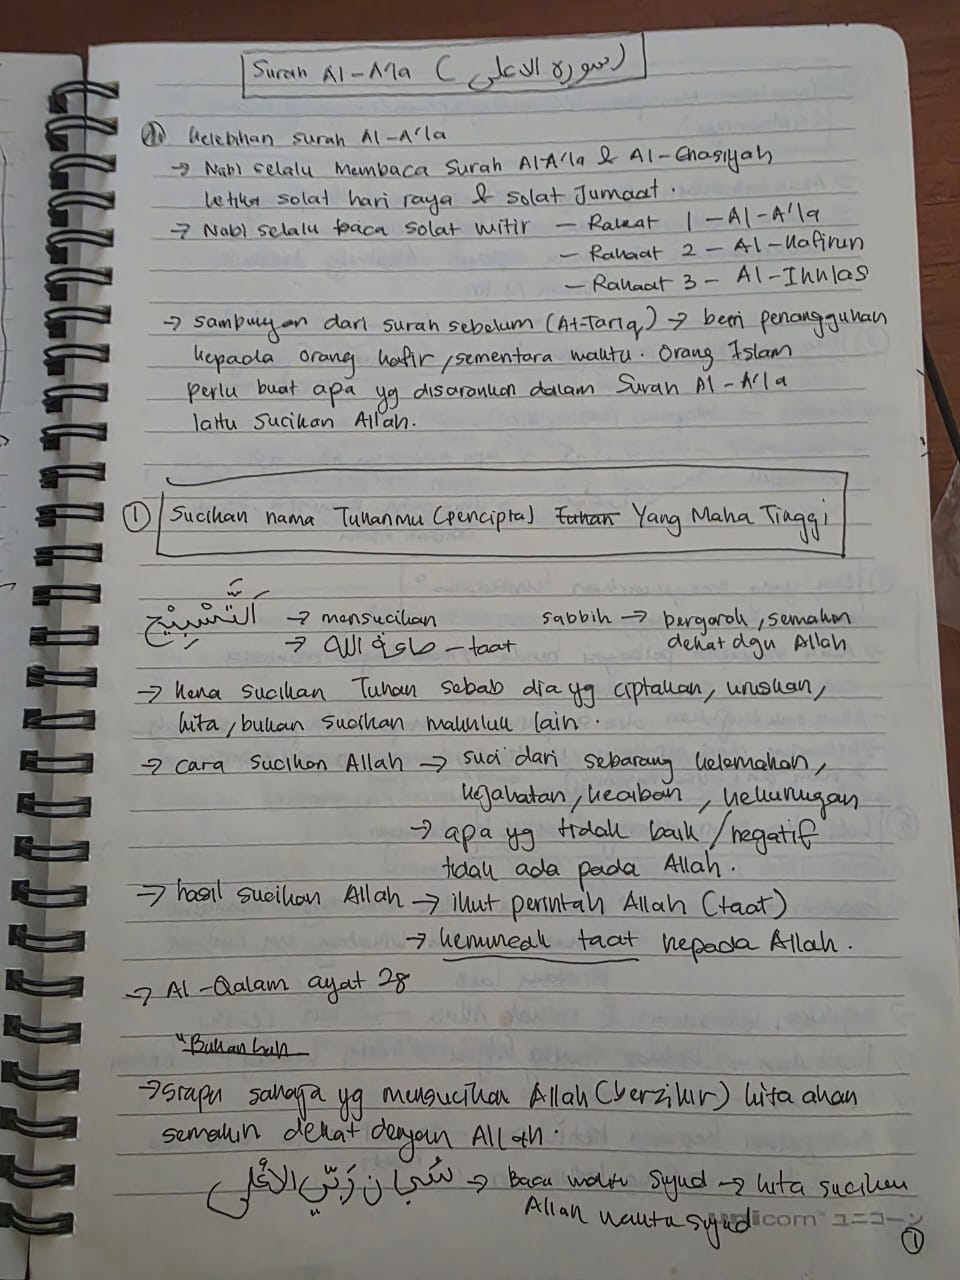 Surah Al-A'la (سورة الاعلى)
Kelebihan surah Al-A'la
→ Nabi selalu membaca surah Al-A'la & Al-Ghasiyah
ketika solat hari raya & solat Jumaat.
→ Nabi selalu baca solat witir – Rakaat 1 – Al-A'la
– Rakaat 2 – Al-Kafirun
– Rakaat 3 – Al-Ikhlas
→ sambungan dari surah sebelum (At-Tariq) → beri penangguhan
kepada orang kafir, sementara waktu. Orang Islam
perlu buat apa yg disarankan dalam Surah Al-A'la
iaitu sucikan Allah.
① Sucikan nama Tuhanmu (pencipta) Tuhan Yang Maha Tinggi
اَلتَّسْبِيْحُ → mensucikan sabbih → bergerak, semakin
→ الله – taat dekat dgn Allah
→ kena sucikan Tuhan sebab dia yg ciptakan, uruskan,
kita, bukan sucikan makhluk lain.
→ cara sucikan Allah → suci dari sebarang kelemahan,
kejahatan, keaiban, kekurangan
→ apa yg tidak baik/negatif
tidak ada pada Allah.
→ hasil sucikan Allah → ikut perintah Allah (taat)
→ kemuncak taat kepada Allah.
→ Al-Qalam ayat 28
"Bukankah
→ siapa sahaja yg mensucikan Allah (berzikir) kita akan
semakin dekat dengan Allah.
سُبحان رَبّيَ الأعلى → Baca waktu sujud → kita sucikan
Allah waktu sujud
unicom ユニコーン
①